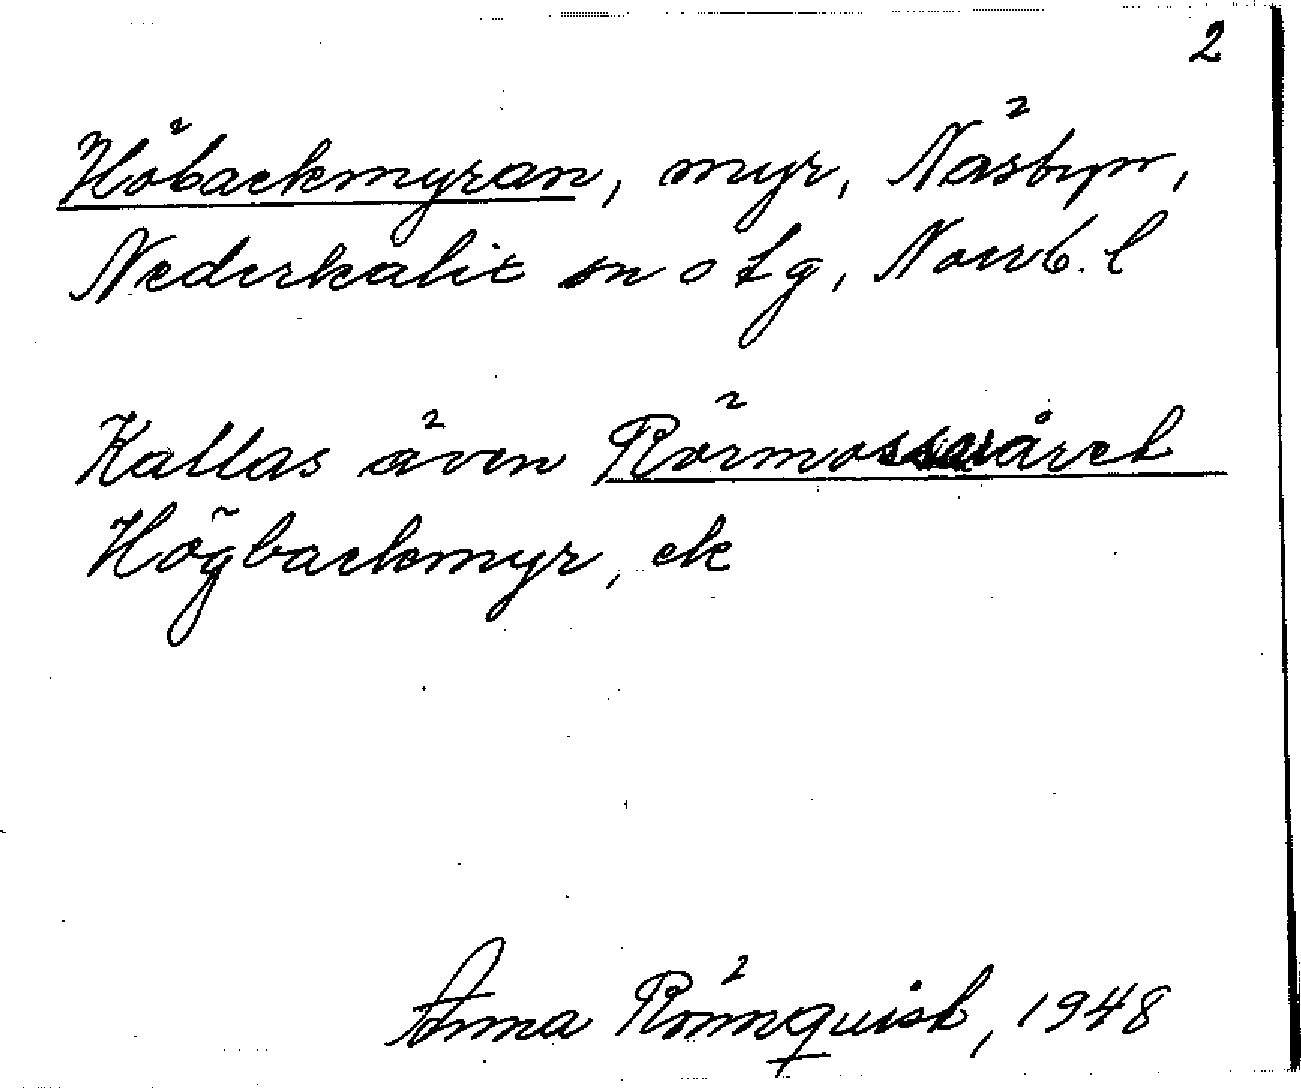 2
Höbackmyran, myr, Näsbyn,
Nederkalix sn o tg, Norrb. l
Kallas även Rörmossaråret
Högbackmyr, ek
Anna Rönnquist, 1948